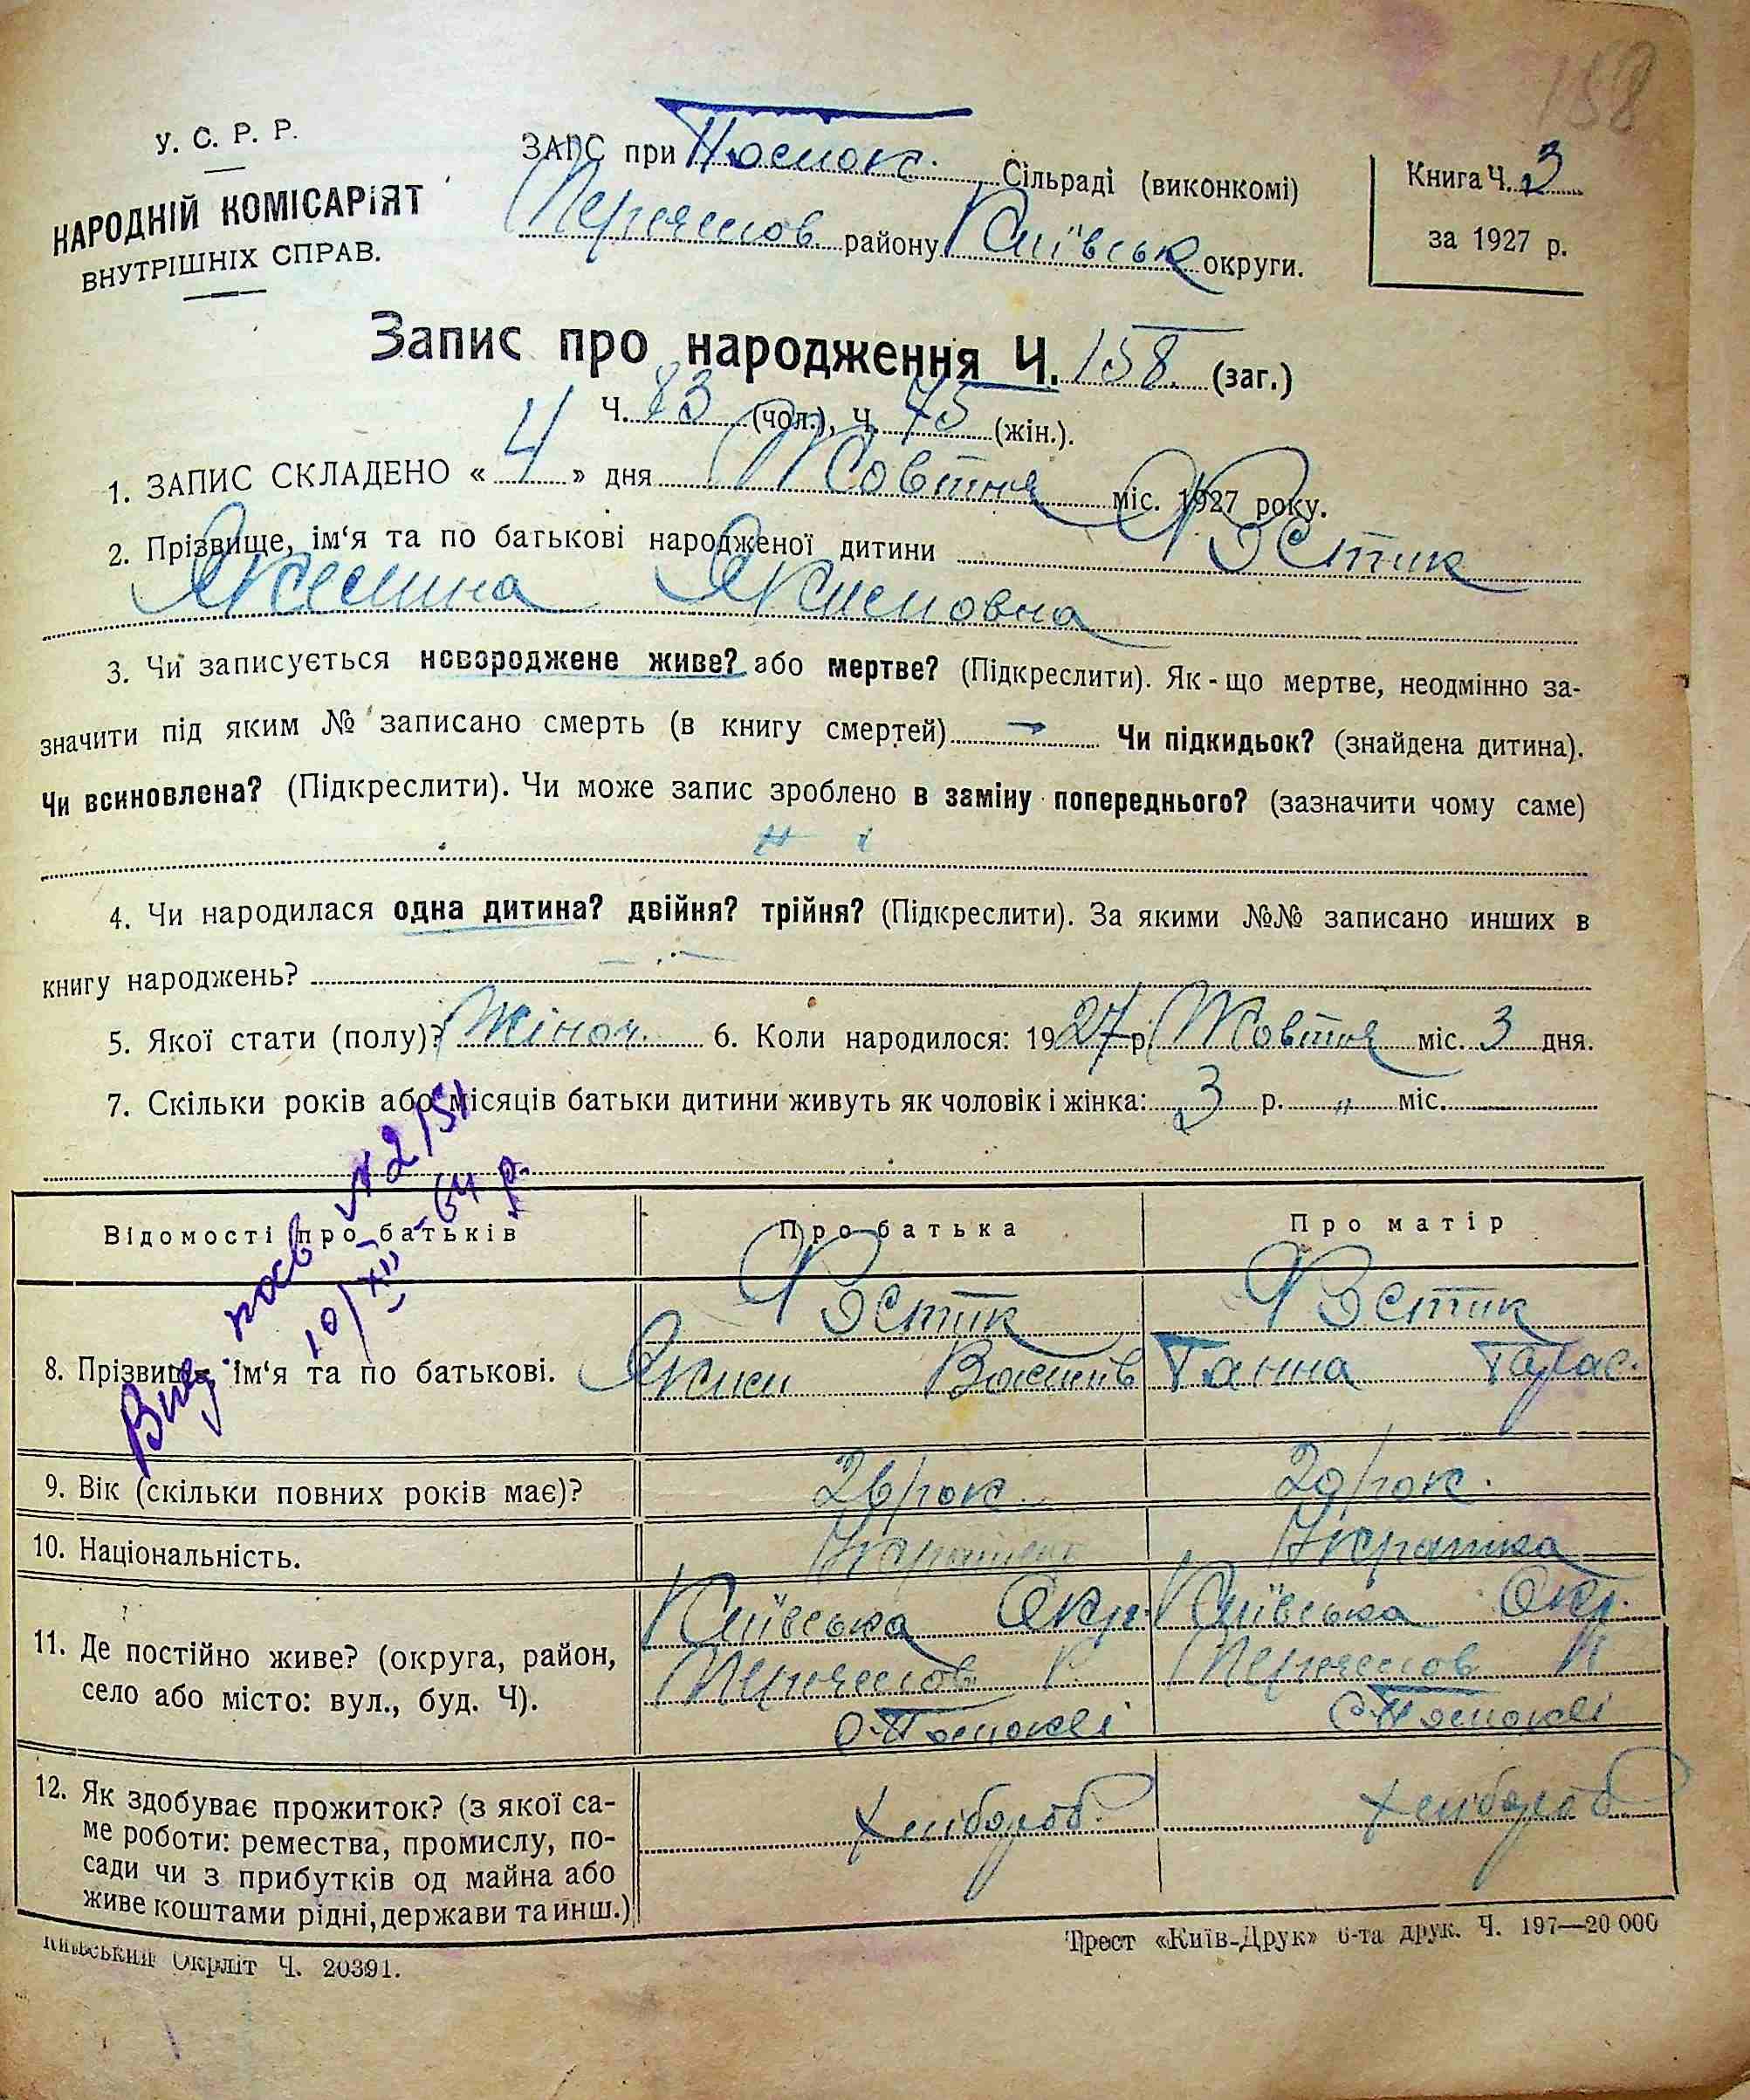 158
У. С. Р. Р.
НАРОДНІЙ КОМІСАРІЯТ
ВНУТРІШНІХ СПРАВ.
ЗАГС при Сільраді (виконкомі)
району Київськ округи.
Книга Ч. 3
за 1927 р.
Запис про народження Ч. 158. (заг.)
Ч. 83 (чол.), Ч. 75 (жін.).
1. ЗАПИС СКЛАДЕНО « 4 » дня Жовтня міс. 1927 року.
2. Прізвище, ім‘я та по батькові народженої дитини
Якимовна
3. Чи записується новороджене живе? або мертве? (Підкреслити). Як-що мертве, неодмінно за-
значити під яким № записано смерть (в книгу смертей) — Чи підкидьок? (знайдена дитина).
Чи всиновлена? (Підкреслити). Чи може запис зроблено в заміну попереднього? (зазначити чому саме)
н і
4. Чи народилася одна дитина? двійня? трійня? (Підкреслити). За якими №№ записано инших в
книгу народжень?
5. Якої стати (полу)? Жіноч. 6. Коли народилося: 1927 р. Жовтня міс. 3 дня.
7. Скільки років або місяців батьки дитини живуть як чоловік і жінка: 3 р. „ міс.
Відомості про батьків Про батька Про матір
8. Прізвище, ім‘я та по батькові.
Яким Ганна Тарас.
9. Вік (скільки повних років має)? 26 рок. 20 рок.
10. Національність. Українець Українка
11. Де постійно живе? (округа, район,
село або місто: вул., буд. Ч).
Київська Окр. Київська Окр.
12. Як здобуває прожиток? (з якої са-
ме роботи: ремества, промислу, по-
сади чи з прибутків од майна або
живе коштами рідні, держави та инш.)
Хлібороб. Хлібороб
Київський Окрліт Ч. 20391.
Трест «Київ-Друк» 6-та друк. Ч. 197—20 000